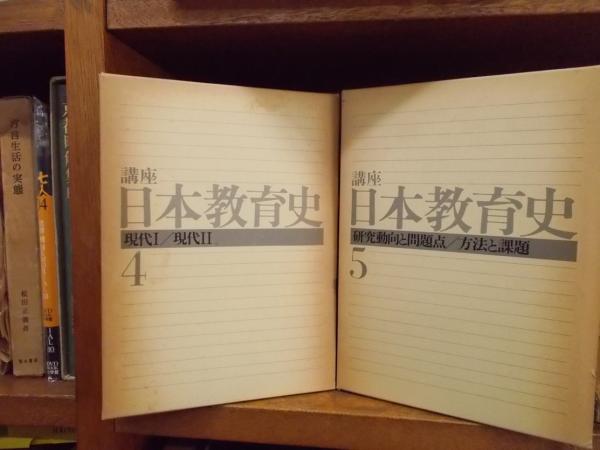 講座
日本教育史
現代I/現代II
4
講座
日本教育史
研究動向と問題点/方法と課題
5
方言生活の実態
七人
4
DVD